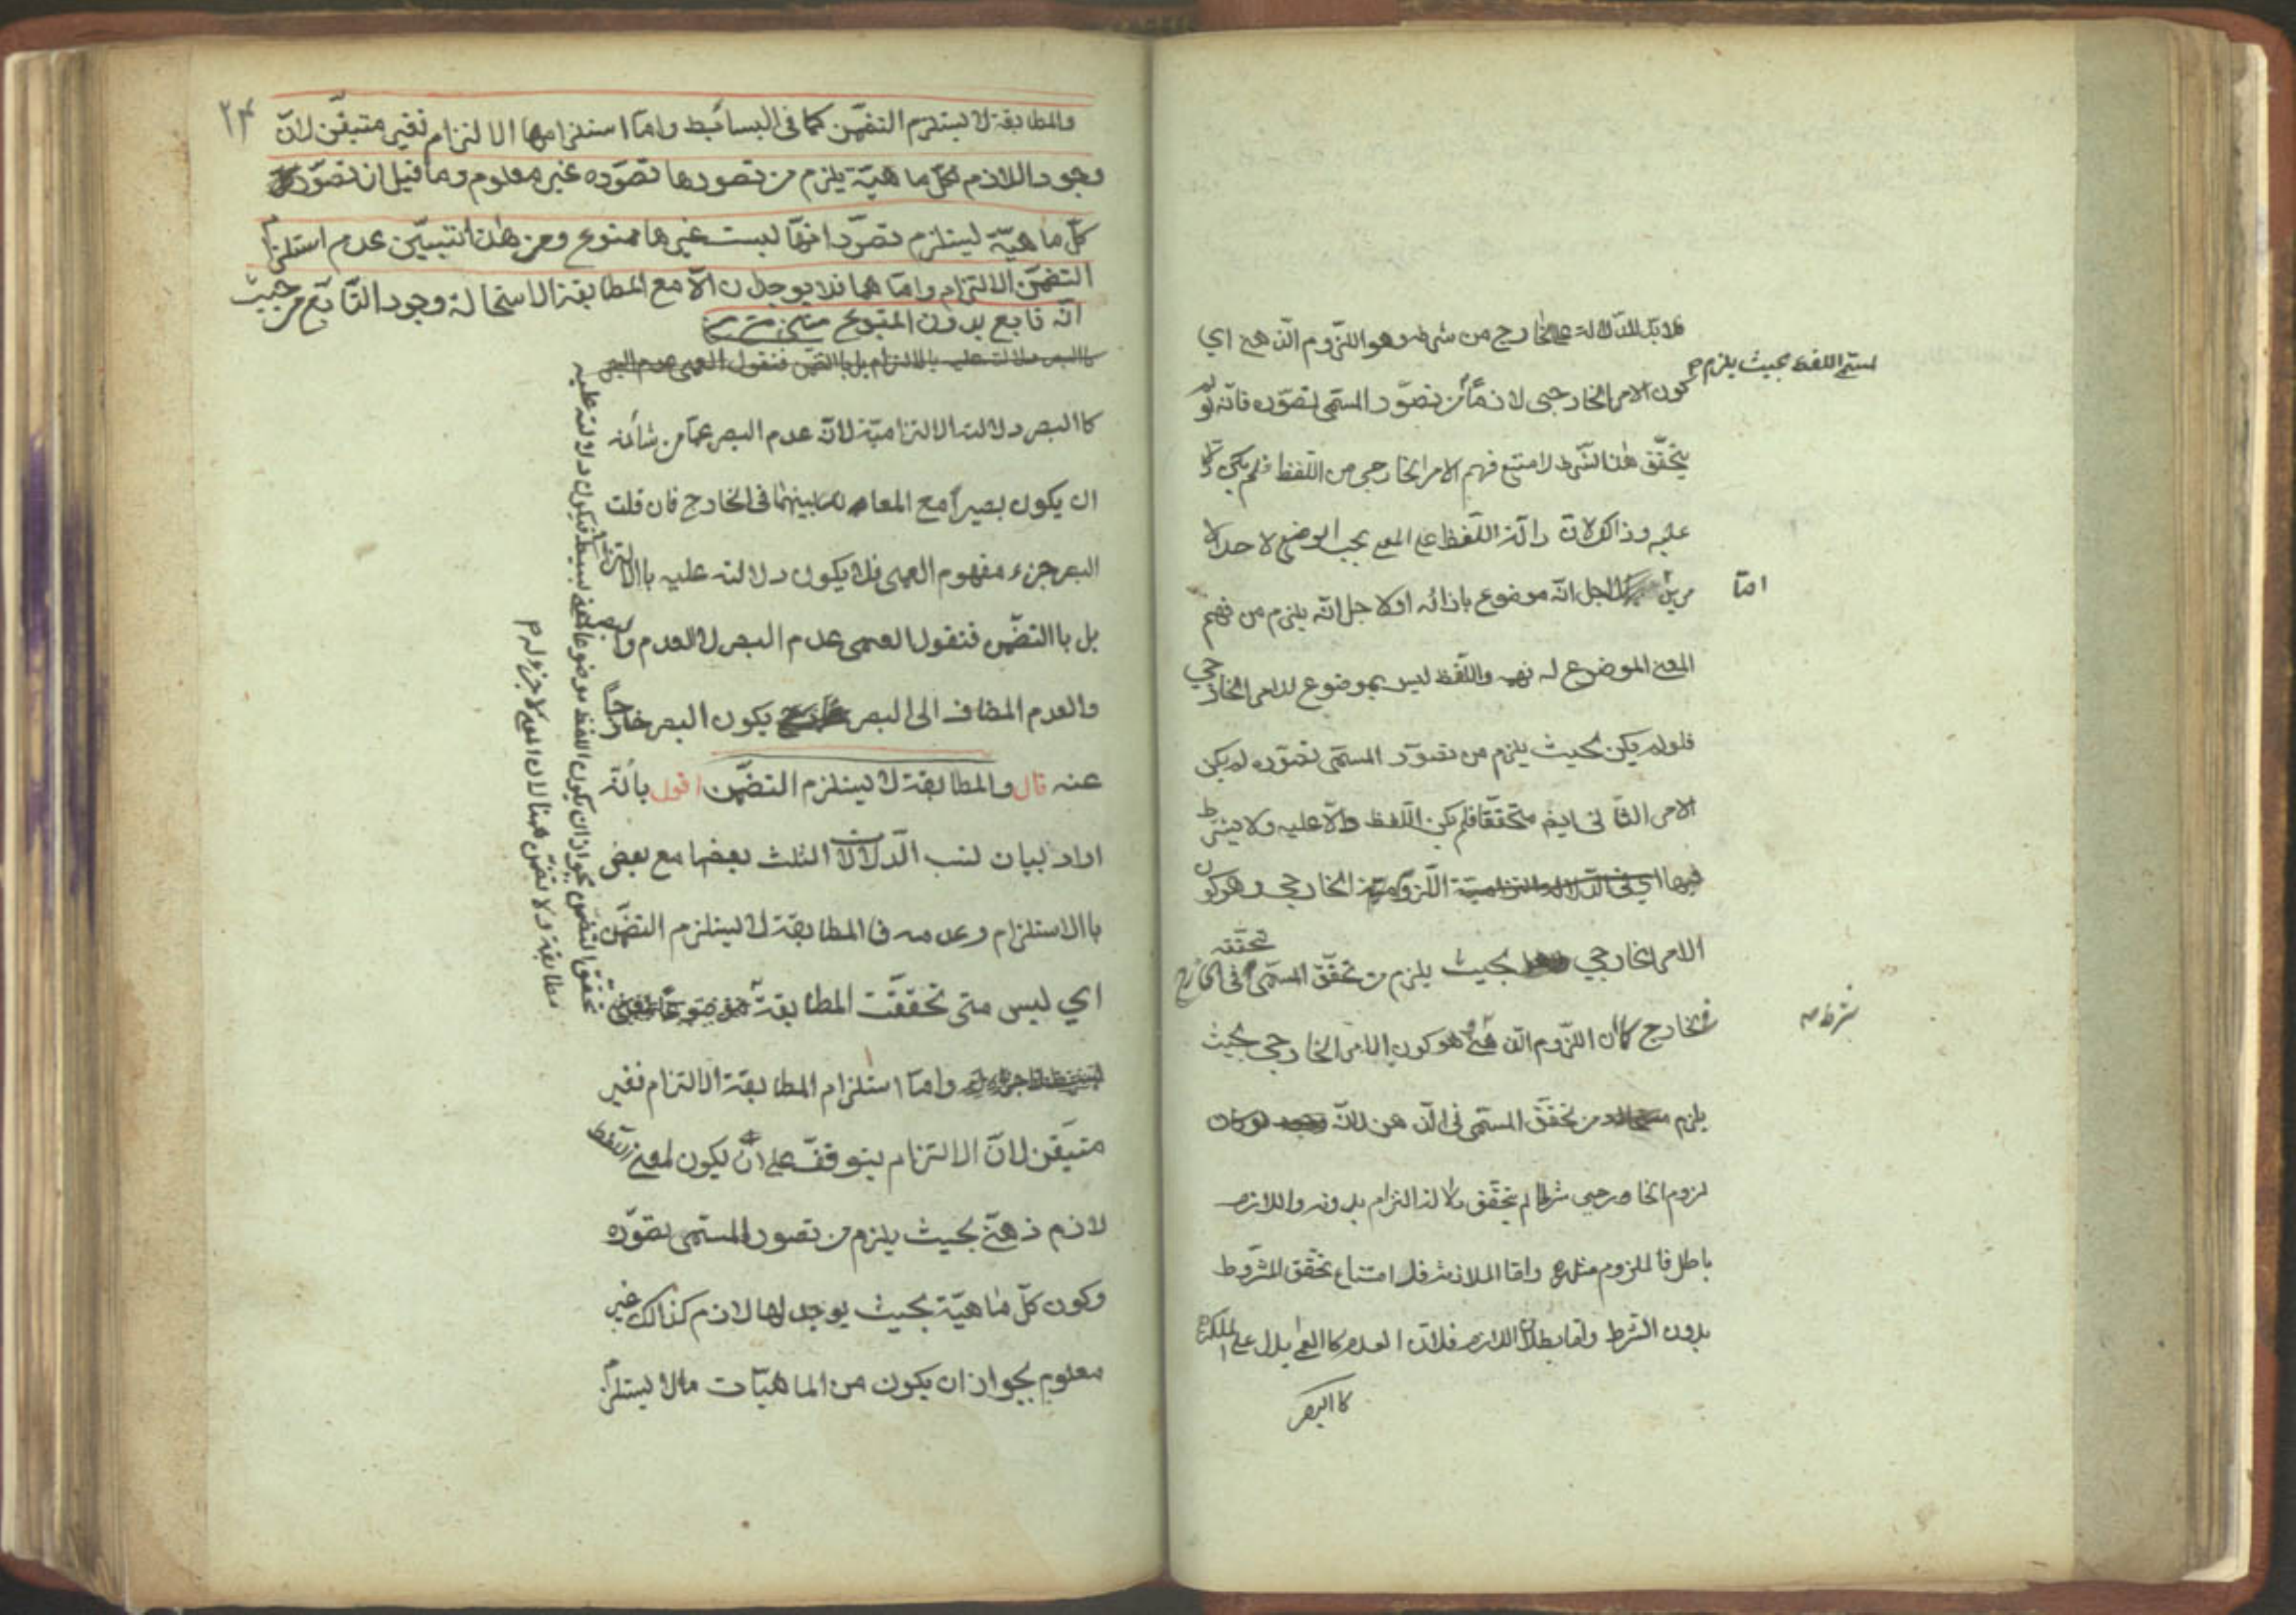 فلا بدّ للدّلالة على الخارج من شرط وهو اللزوم الذهني اي
كون الامر الخارجي لازمًا
لمسمّى اللفظ بحيث يلزم
من تصوّر المسمّى تصوّره فانّه لو لم
يتحقّق هذا الشّرط لامتنع فهم الامر الخارجي من اللّفظ فلم يكن دالّا
عليه وذالك لانّ دلالة اللّفظ على المعنى بحسب الوضع لاحد الا
مرين امّا لاجل انّه موضوع بازائه او لاجل انّه يلزم من فهم
المعنى الموضوع له فهمه واللّفظ ليس بموضوع للامر الخارجي
فلو لم يكن بحيث يلزم من تصوّر المسمّى تصوّره لم يكن
الامر الثّاني ايضا متحقّقا فلم يكن اللّفظ دالّا عليه ولا يشترط
فيها اي في الدّلالة الالتزاميّة اللّزوميّة الخارجي وهو كون
الامر الخارجي بحيث يلزم من تحقّق المسمّى في الخارج تحقّقه
في الخارج كما انّ اللّزوم الذهني هو كون الامر الخارجي بحيث
شرط
يلزم من تحقّق المسمّى في الذهن لانّه لو كان
لزوم الخارجي شرطا لم يتحقّق دلالة التزام بدونه واللازم
باطل فالملزوم مثله وامّا الملازمة فلامتناع تحقّق المشروط
بدون الشرط وامّا بطلان اللازم فلانّ العدم كاالعمى يدل على الملكة
كاالبصر
٢٤
والمطابقة لا يستلزم التضمّن كما في البسائط وامّا استلزامها الالتزام فغير متيقّن لانّ
وجود اللازم لكلّ ماهيّة يلزم من تصورها تصوّره غير معلوم وما قيل ان تصوّر
كلّ ماهيّة ليستلزم تصوّر انّها ليست غيرها ممنوع ومن هذا تبيّن عدم استلزام
التضمّن الالتزام وامّا هما فلا يوجدان الّا مع المطابقة لاستحالة وجود التّابع من حيث
انّه تابع بدون المتبوع متن
كاالبصر دلالته عليه بالالتزام بل باالتضمّن فنقول العمى عدم البصر
كاالبصر دلالة الالتزاميّة لانّه عدم البصر عمّا من شأنه
ان يكون بصيرا مع المعاندة بينهما في الخارج فان قلت
البصر جزء مفهوم العمى فلا يكون دلالته عليه باالالتزام
بل باالتضمّن فنقول العمى عدم البصر لا العدم والبصر
والعدم المضاف الى البصر يكون البصر خارجًا
عنه قال والمطابقة لا يستلزم التضمّن اقول بانّه
اراد بيان نسب الدّلالات الثلث بعضها مع بعض
باالاستلزام وعدمه فاالمطابقة لا يستلزم التضمّن
اي ليس متى تحقّقت المطابقة
وامّا استلزام المطابقة الالتزام فغير
متيقّن لانّ الالتزام يتوقّف على انّ يكون لمعنى اللّفظ
لازم ذهنيّ بحيث يلزم من تصور المسمّى تصوّره
وكون كلّ ماهيّة بحيث يوجد لها لازم كذالك غير
معلوم بجواز ان يكون من الماهيّات مالا يستلزم
تحقّق التضمّن بجواز ان يكون اللفظ موضوعا لمعنى بسيط فيكون دلالته عليه
مطابقة ولا تضمّن ههنا لان المعنى لا جزء له